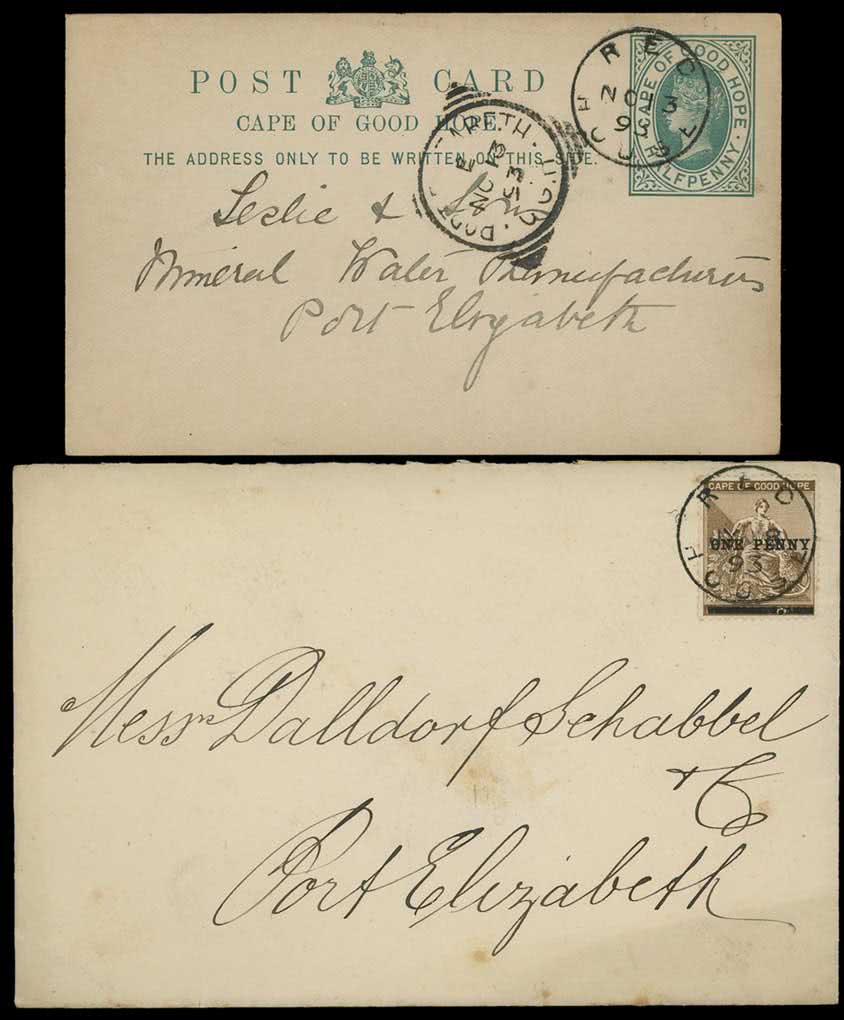 POST CARD
CAPE OF GOOD HOPE.
THE ADDRESS ONLY TO BE WRITTEN ON THIS SIDE.
CAPE OF GOOD HOPE.
HALFPENNY.
NO 13
93
NO 13
93
Leslie & Son
Mineral Water Manufacturers
Port Elizabeth
CAPE OF GOOD HOPE
ONE PENNY
93
Messrs Dalldorf Schabbel
& Co
Port Elizabeth